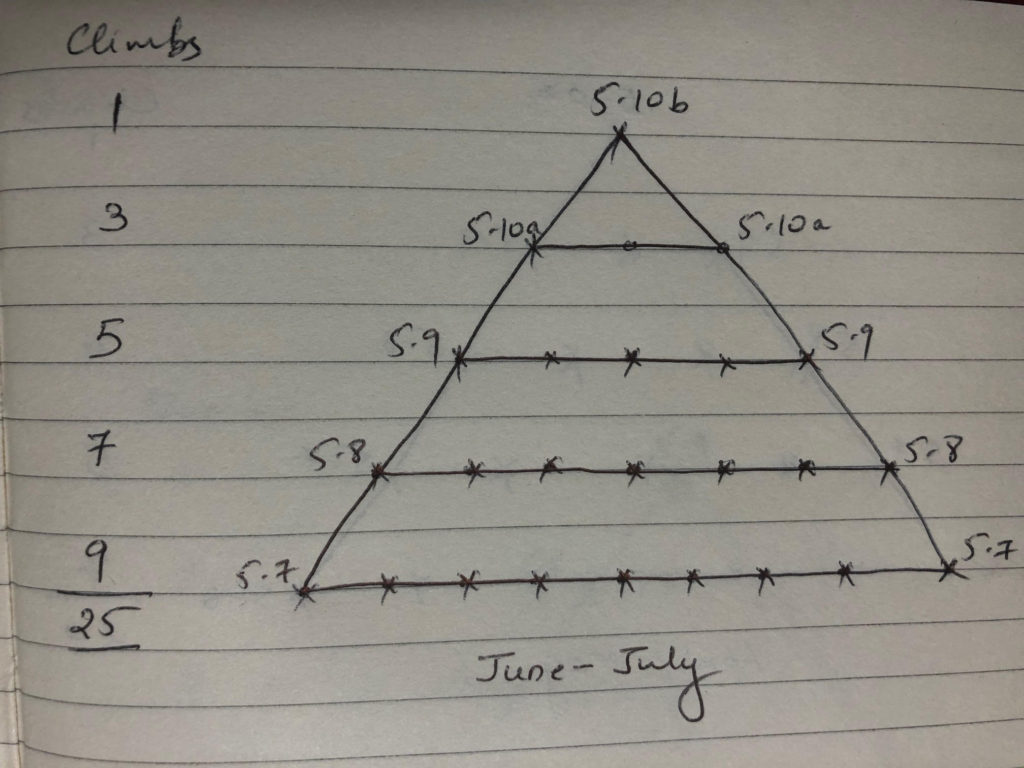 Climbs
1 5.10b
3 5.10a 5.10a
5 5.9 5.9
7 5.8 5.8
9 5.7 5.7
25
June - July